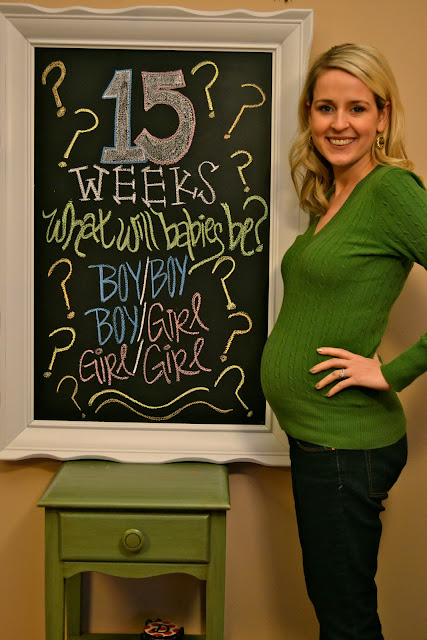 15
WEEKS
What will babies be?
BOY/BOY
BOY/Girl
Girl/Girl